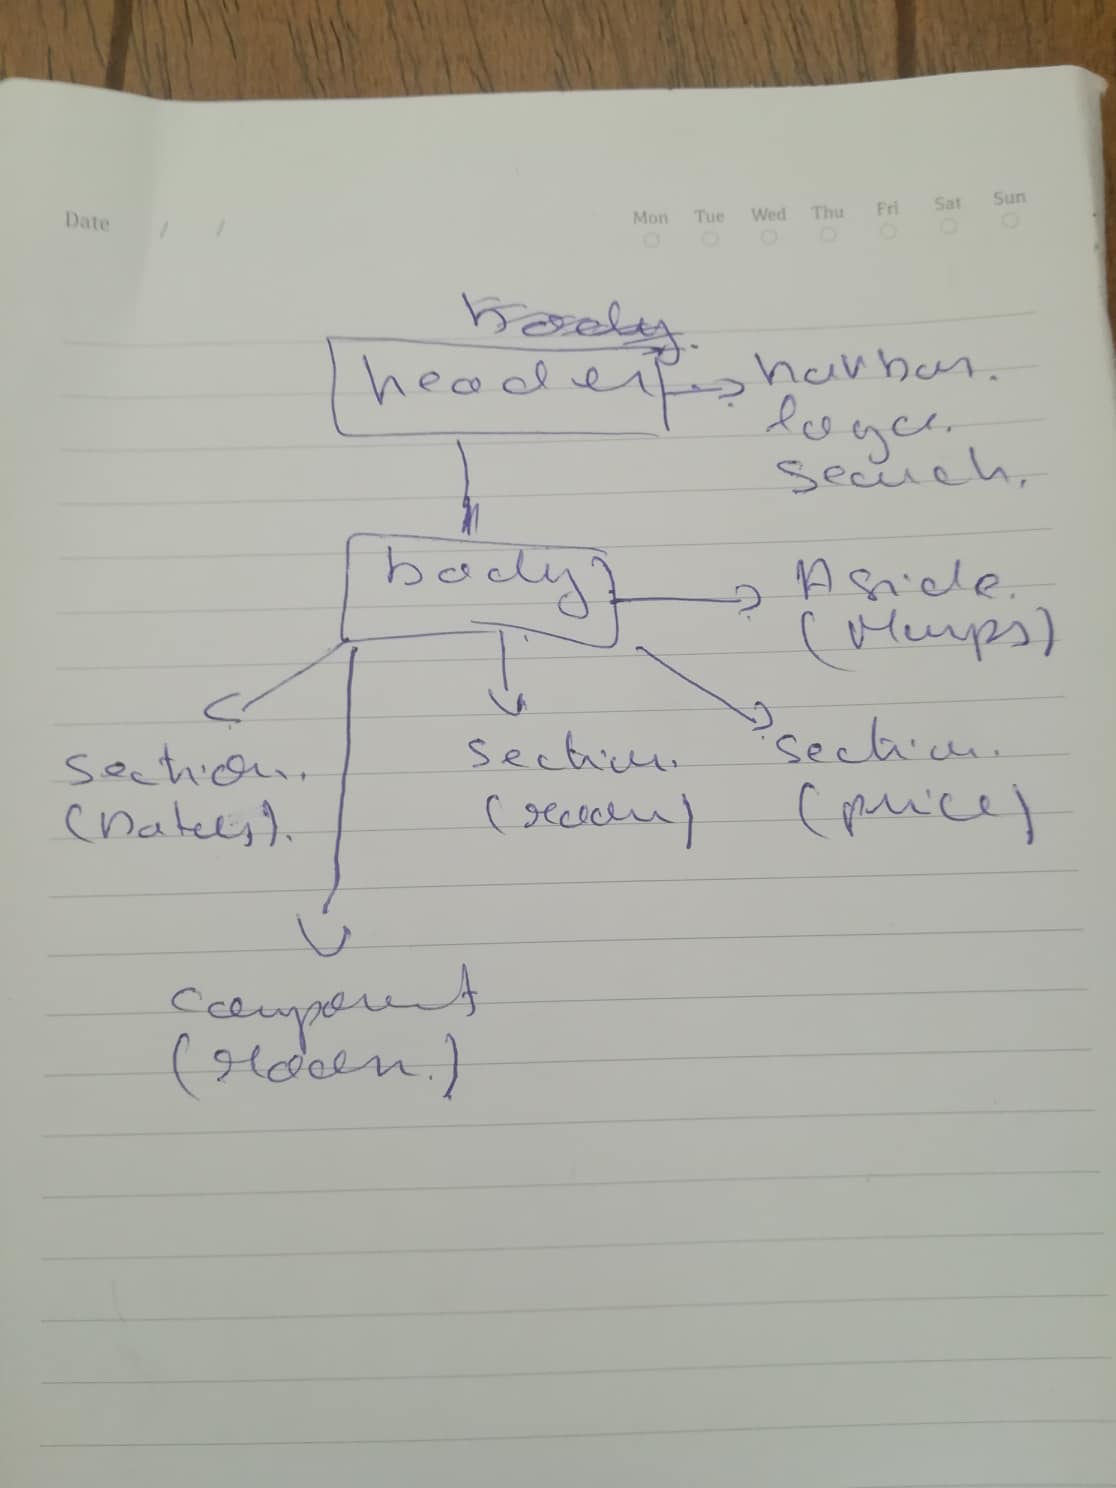 Date / /
Mon Tue Wed Thu Fri Sat Sun
body.
header
navbar.
logo.
search.
body
Aside.
(Maps)
section.
(Dates).
section.
(room)
section.
(price)
component
(room.)